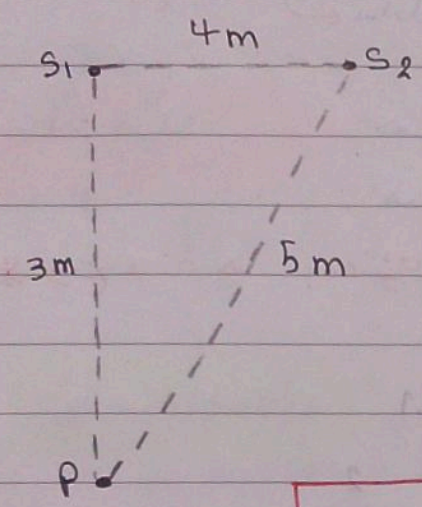 4m
S1 S2
3m 5m
P